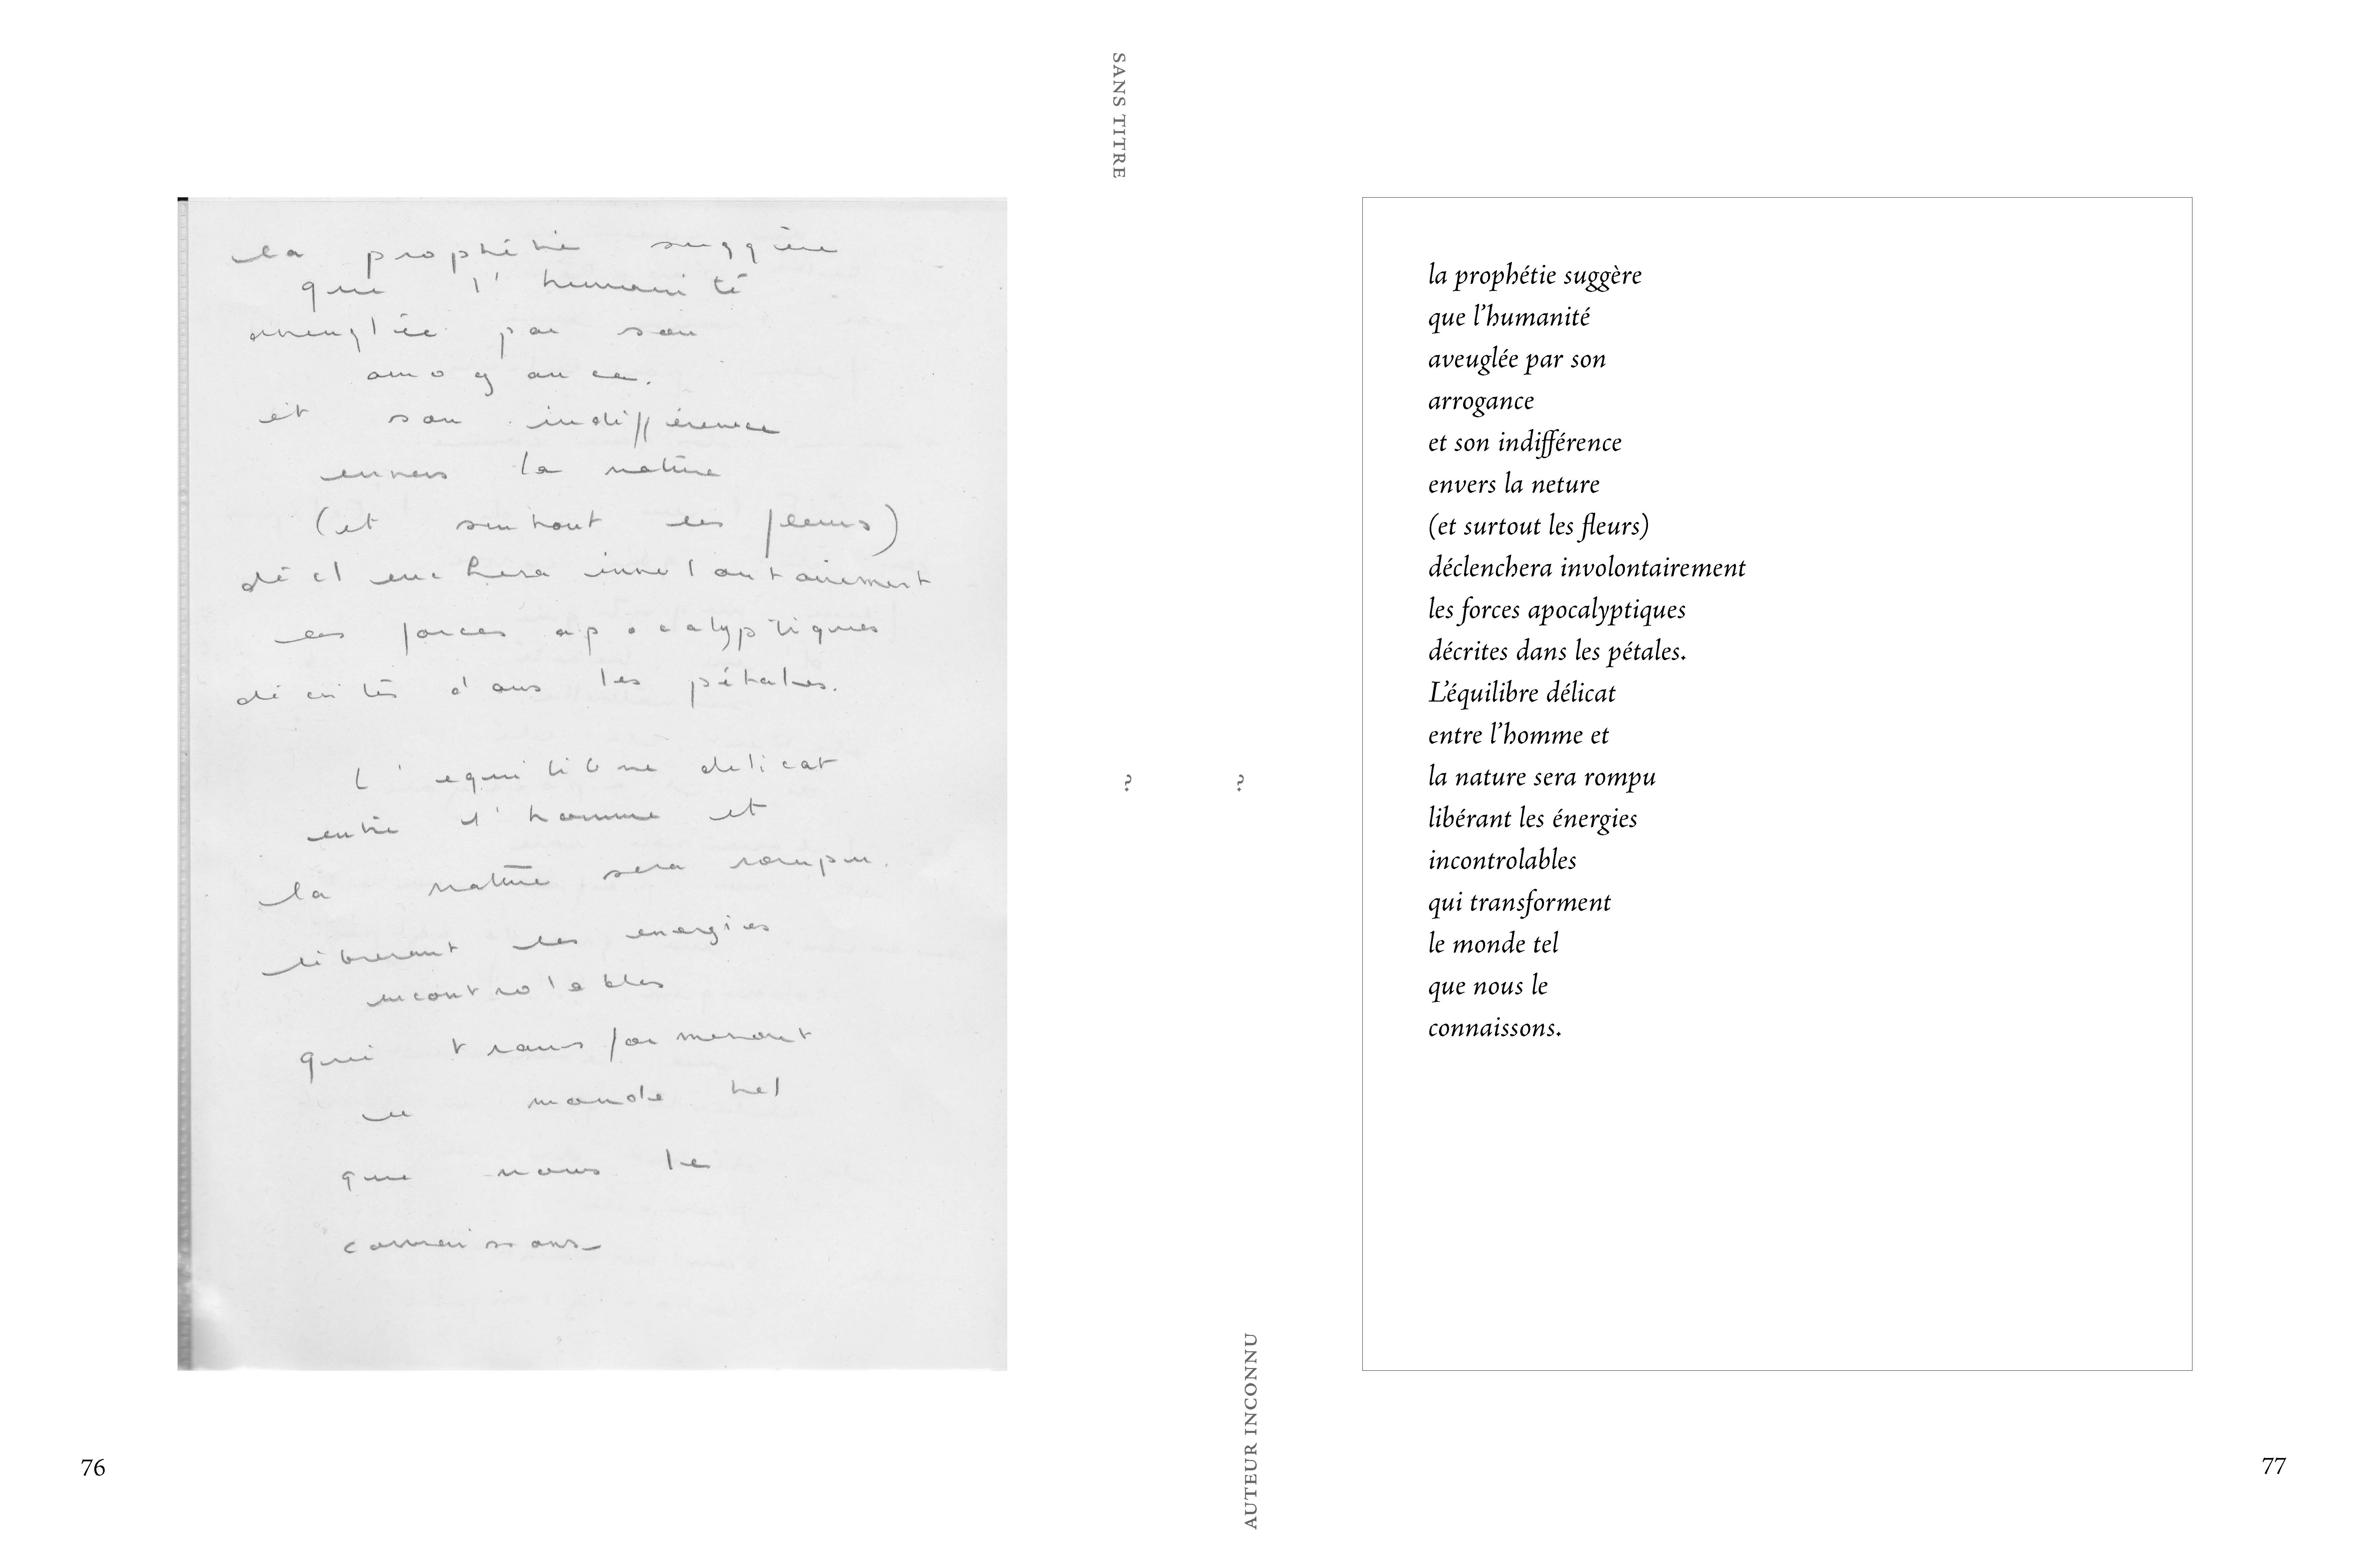 la prophétie suggère
que l'humanité
aveuglée par son
arrogance.
et son indifférence
envers la nature
(et surtout les fleurs)
déclenchera involontairement
les forces apocalyptiques
décrites dans les pétales.
L'equilibre delicat
entre l'homme et
la nature sera rompu.
liberant les energies
incontrolables
qui transformeront
le monde tel
que nous le
connaissons
76
SANS TITRE
?
?
AUTEUR INCONNU
la prophétie suggère
que l’humanité
aveuglée par son
arrogance
et son indifférence
envers la neture
(et surtout les fleurs)
déclenchera involontairement
les forces apocalyptiques
décrites dans les pétales.
L’équilibre délicat
entre l’homme et
la nature sera rompu
libérant les énergies
incontrolables
qui transforment
le monde tel
que nous le
connaissons.
77